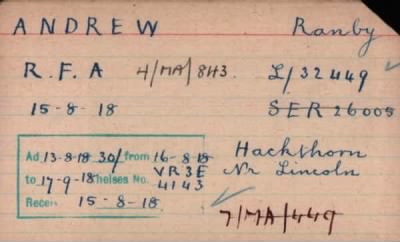 ANDREW Ranby
R.F.A 4/MA/843. L/32449
15-8-18 SER 26005
Ad 13-8-18 30/ from 16-8-18
to 17-9-18 Chelsea No. VR3E 4143
Receiv 15-8-18
Hackthorn
Nr Lincoln
7/MA/449